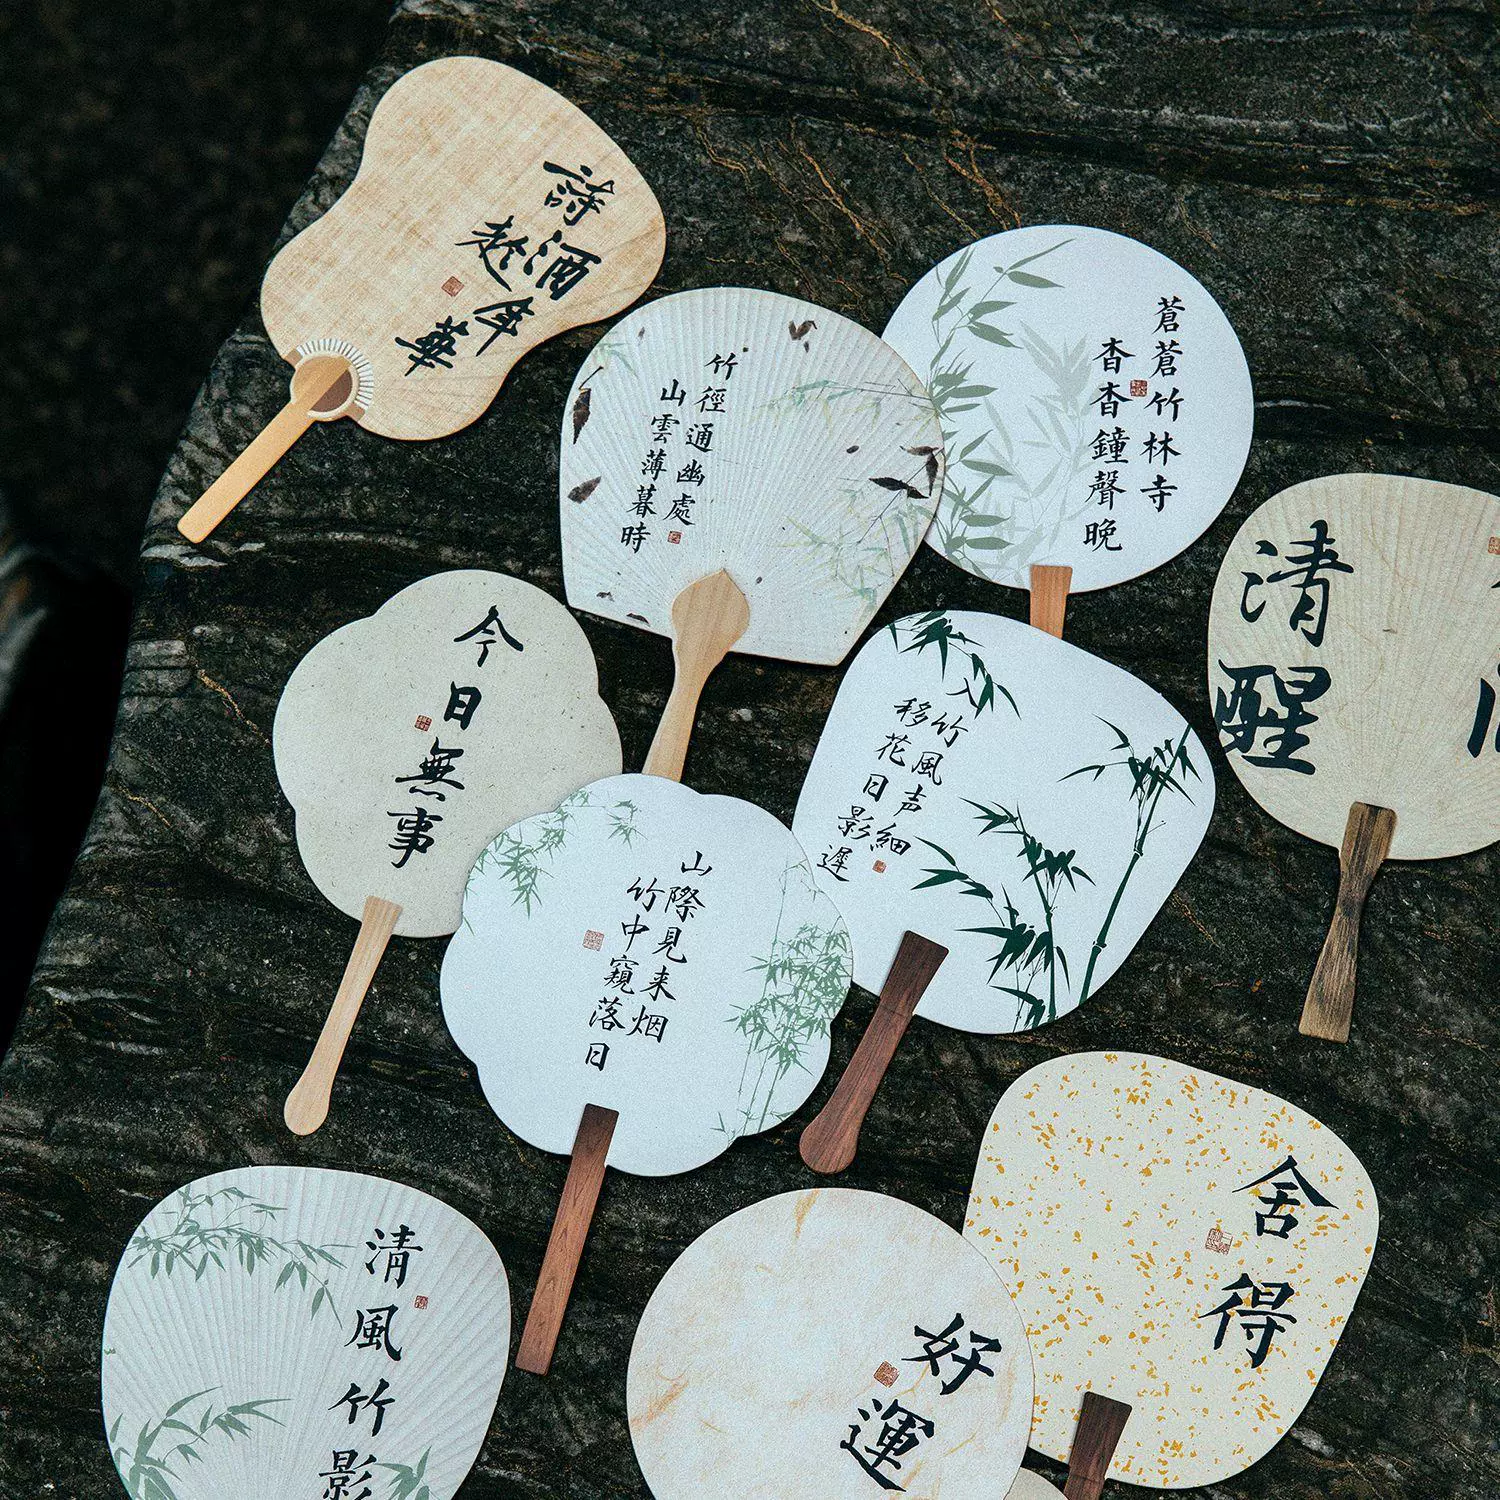 詩酒年華
趁
竹徑通幽處
山雲薄暮時
蒼蒼竹林寺
杳杳鐘聲晚
清醒
今日無事
入竹風声細
移花日影遲
山際見来烟
竹中窺落日
舍得
清風竹影
好運